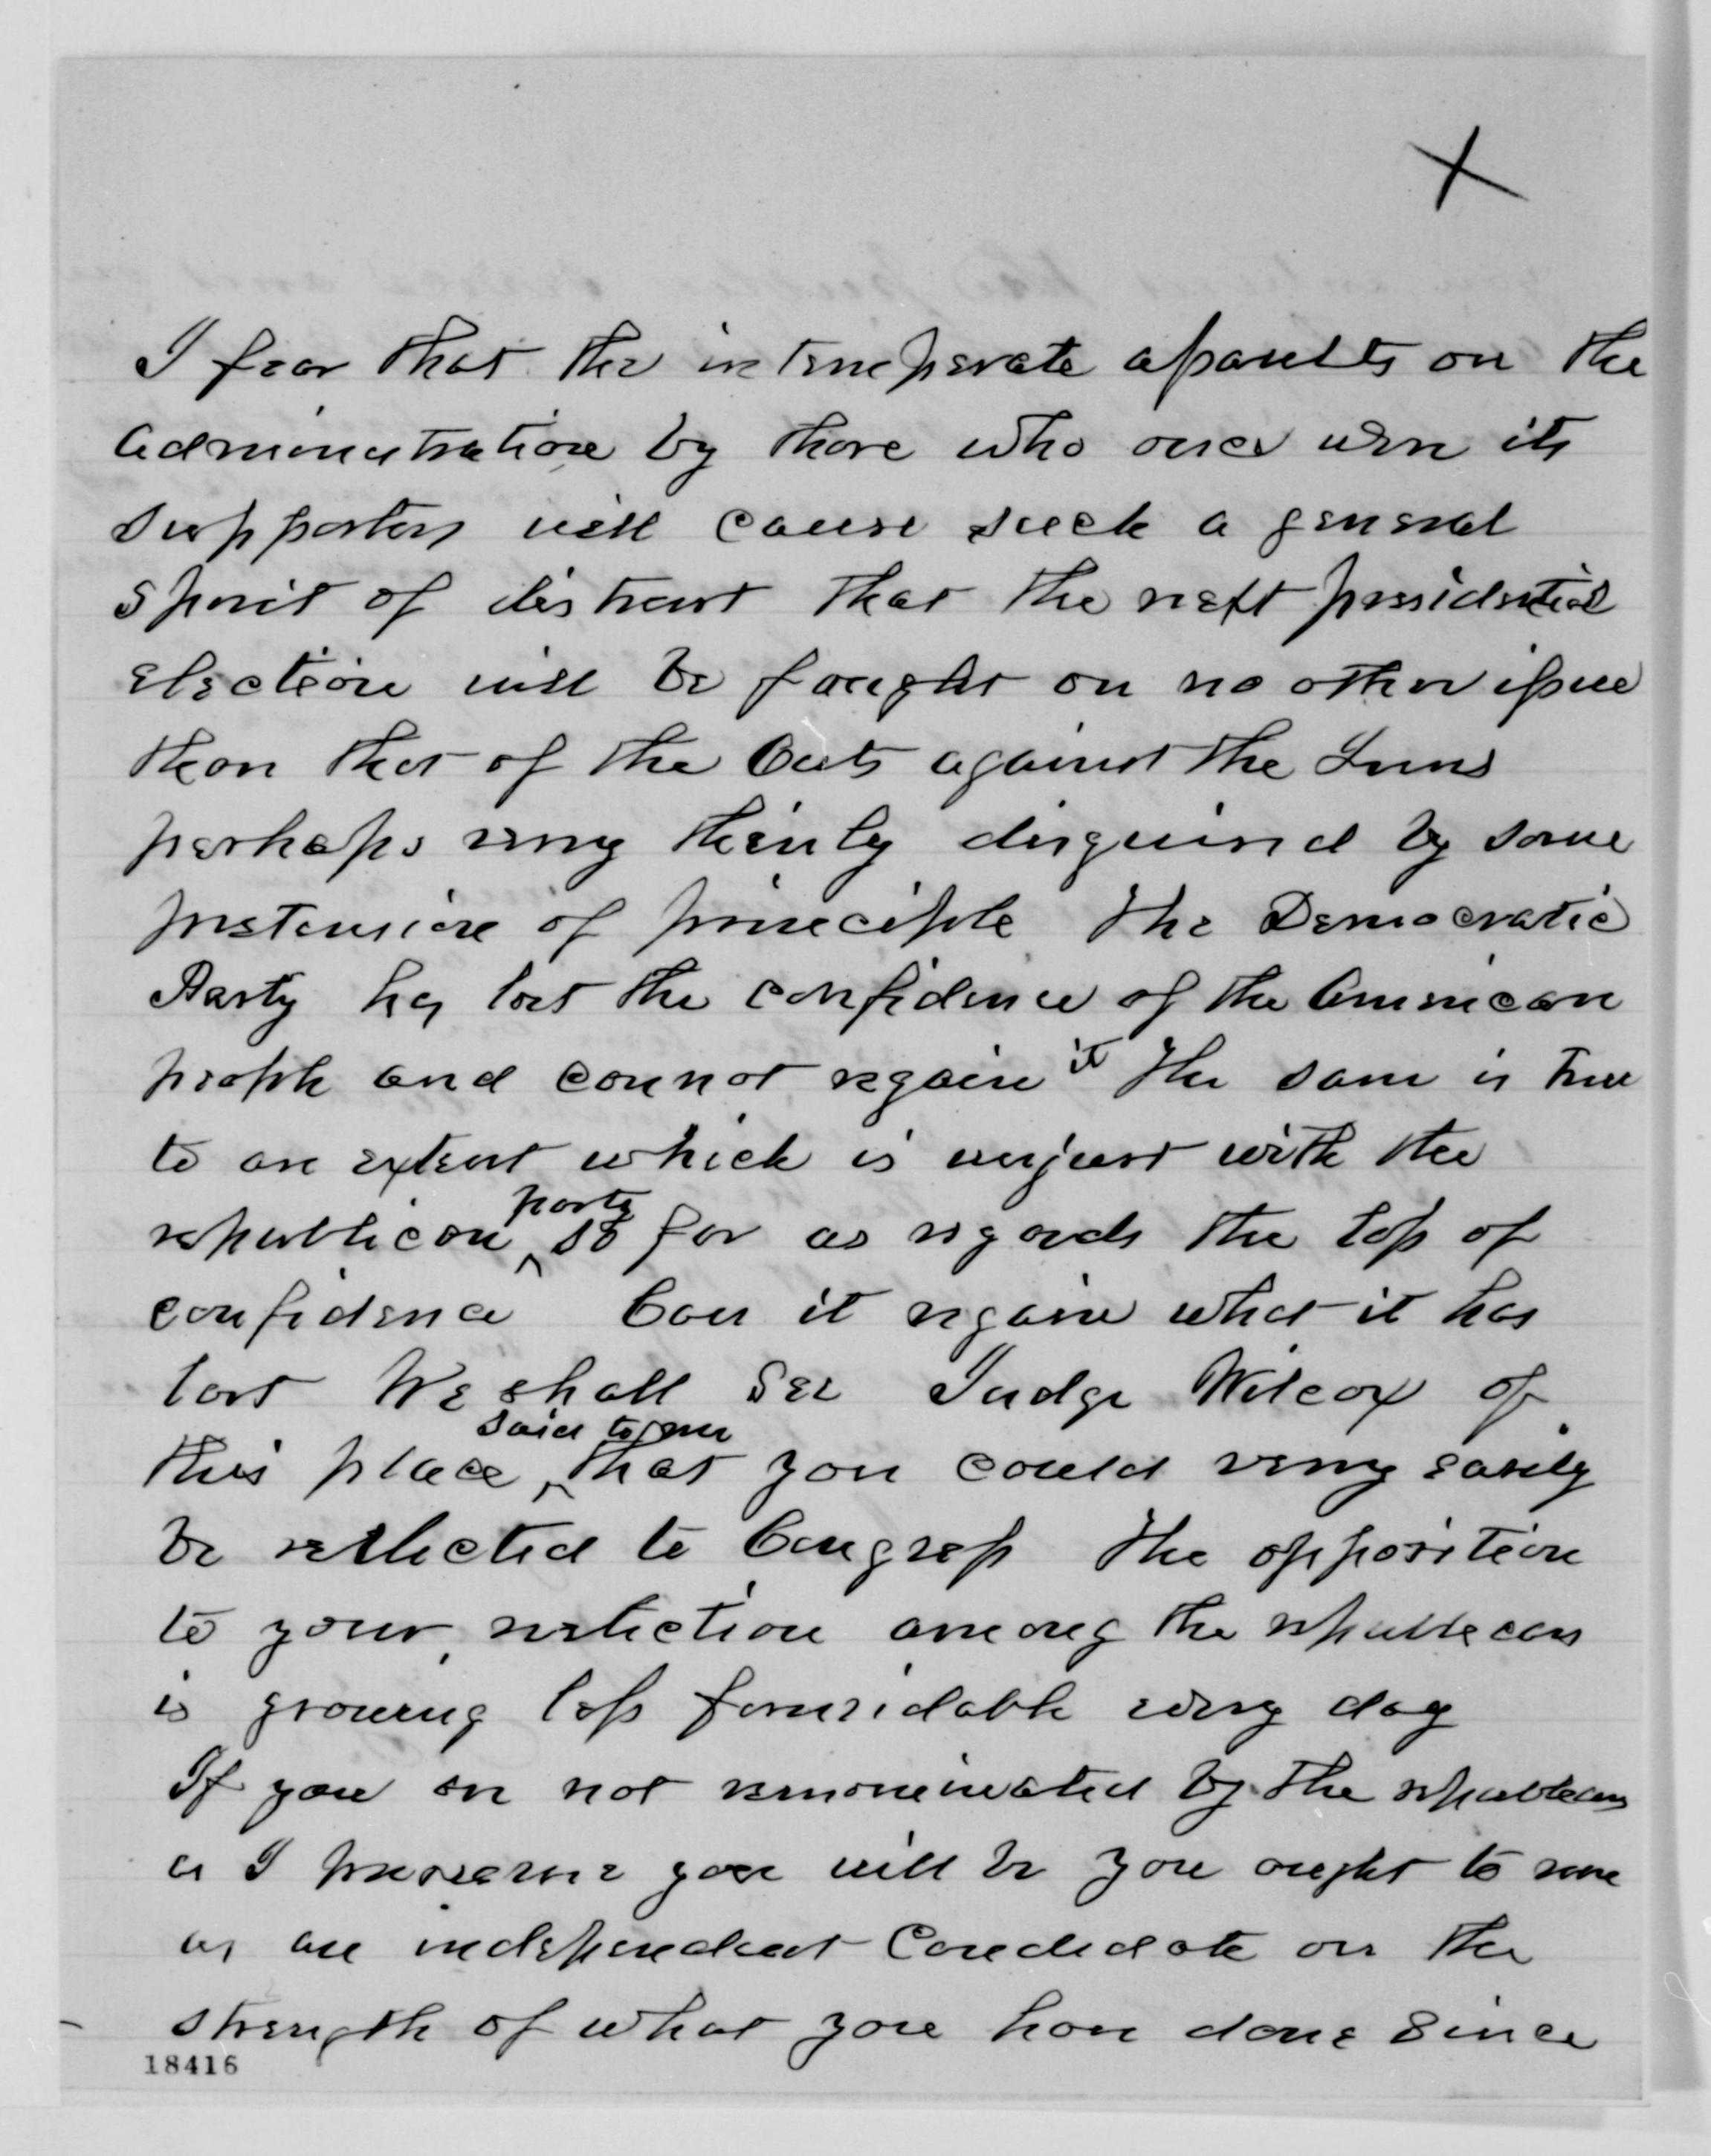 X
I fear that the intemperate assaults on the
administration by those who once were its
supporters will cause such a general
spirit of distrust that the next presidential
election will be fought on no other issue
than that of the Outs against the Inns
perhaps very thinly disguised by some
pretension of principle The Democratic
Party has lost the confidence of the American
people and cannot regain it The same is true
to an extent which is unjust with the
republican party so far as regards the loss of
confidence Can it regain what it has
lost We shall see Judge Wilcox of
this place said to me that you could very easily
be reelected to Congress The opposition
to your reelection among the republicans
is growing less formidable every day
If you are not renominated by the republicans
as I presume you will be you ought to run
as an independent Candidate on the
strength of what you have done since
18416